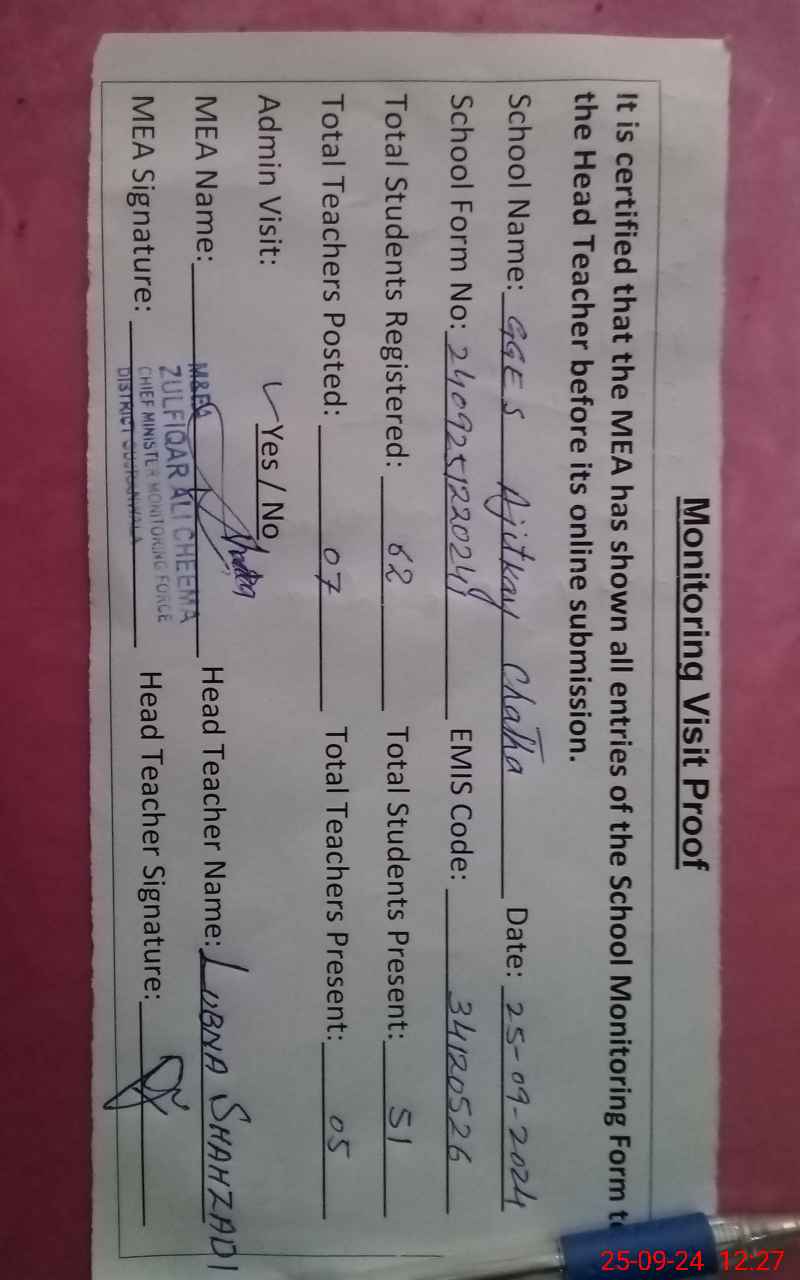 Monitoring Visit Proof
It is certified that the MEA has shown all entries of the School Monitoring Form to
the Head Teacher before its online submission.
School Name: GGES Ajitkay Chatha Date: 25-09-2024
School Form No: 24092512202 EMIS Code: 34120526
Total Students Registered: 62 Total Students Present: 51
Total Teachers Posted: 07 Total Teachers Present: 05
Admin Visit: ✓ Yes / No
MEA Name: Head Teacher Name: LUBNA SHAHZADI
M&EA
ZULFIQAR ALI CHEEMA
CHIEF MINISTER MONITORING FORCE
DISTRICT GUJRANWALA
MEA Signature: Head Teacher Signature:
25-09-24 12:27